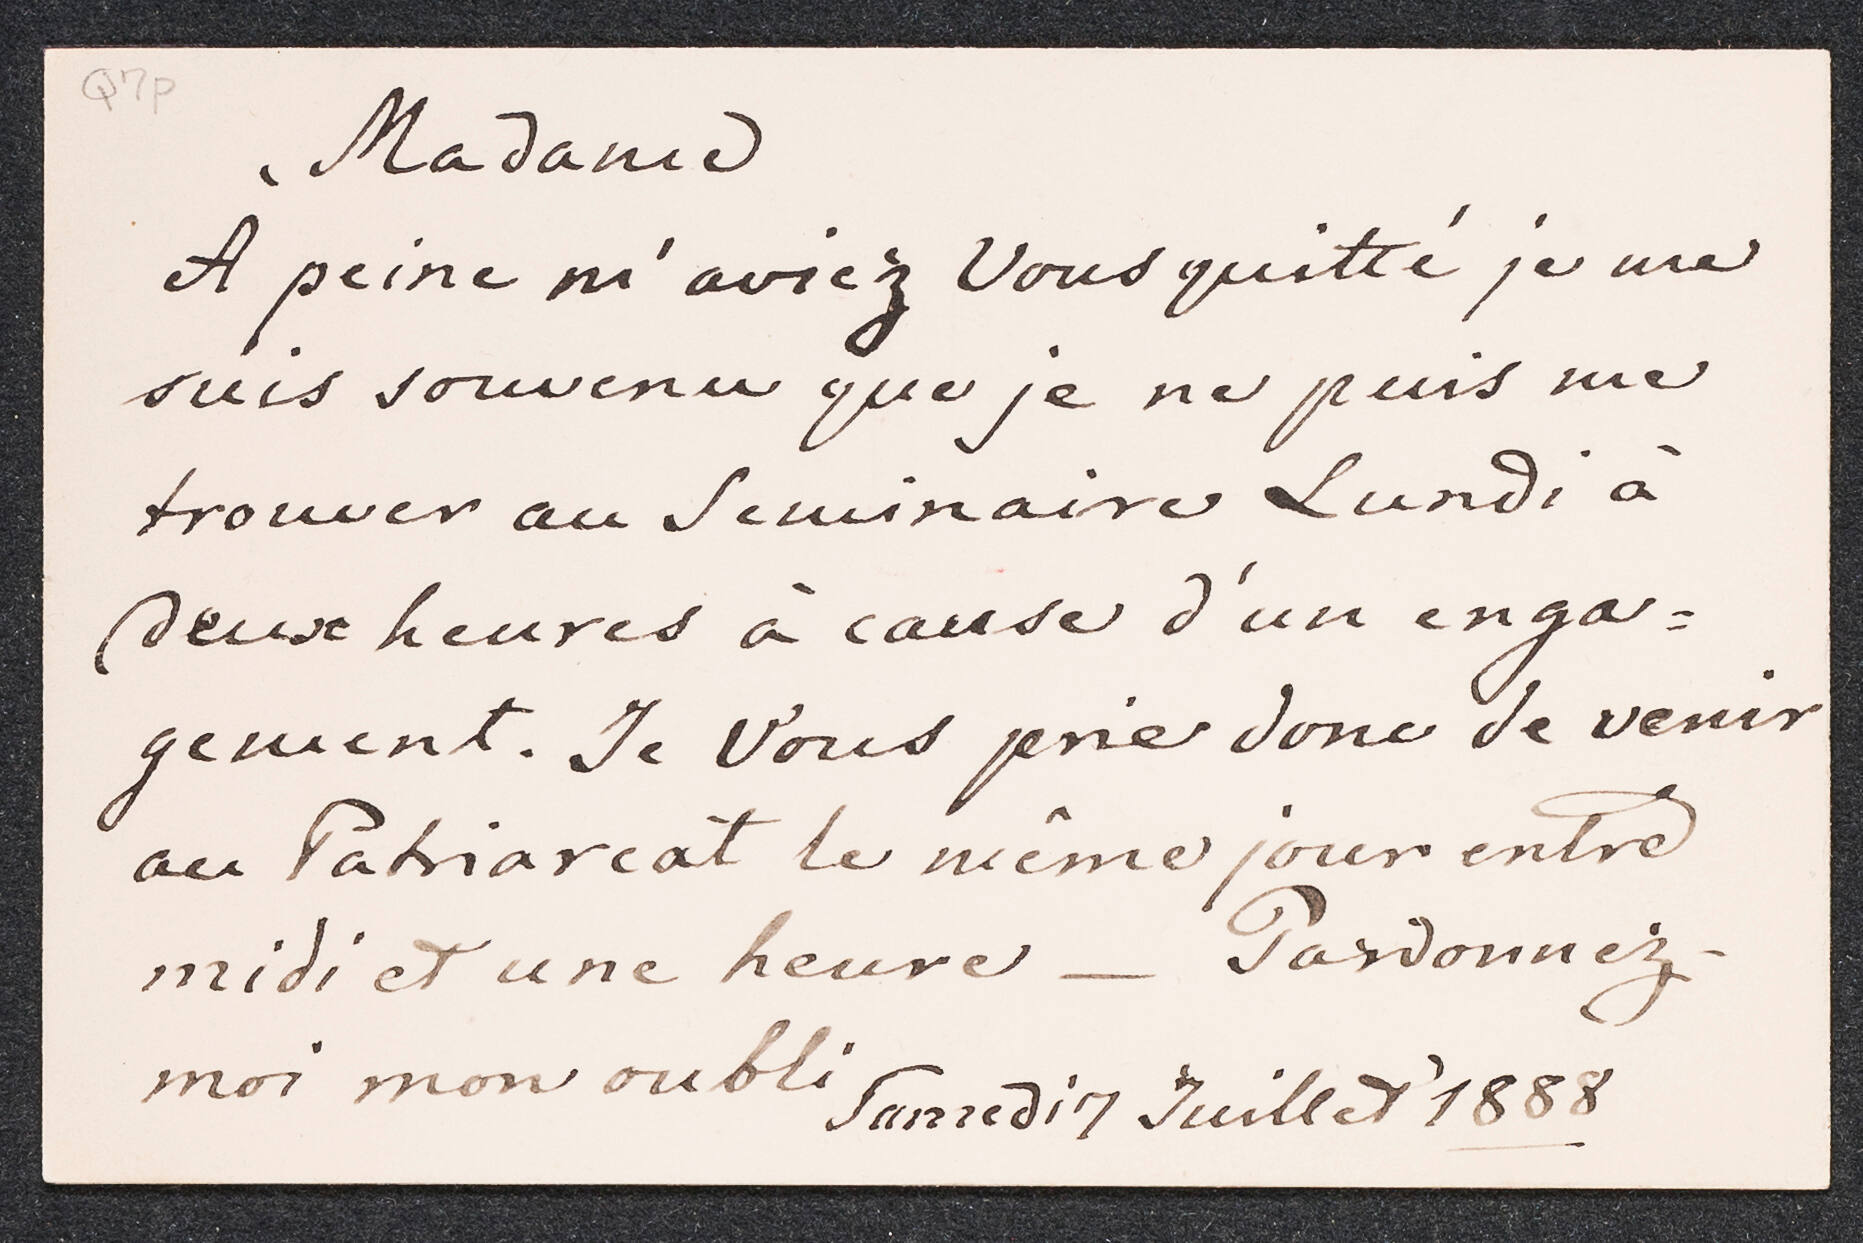 Q7p
Madame
A peine m'aviez Vous quitté je me
suis souvenu que je ne puis me
trouver au Seminaire Lundi à
deux heures à cause d'un enga=
gement. Je Vous prie donc de venir
au Patriarcat le même jour entre
midi et une heure — Pardonnez-
moi mon oubli
Samedi 7 Juillet 1888